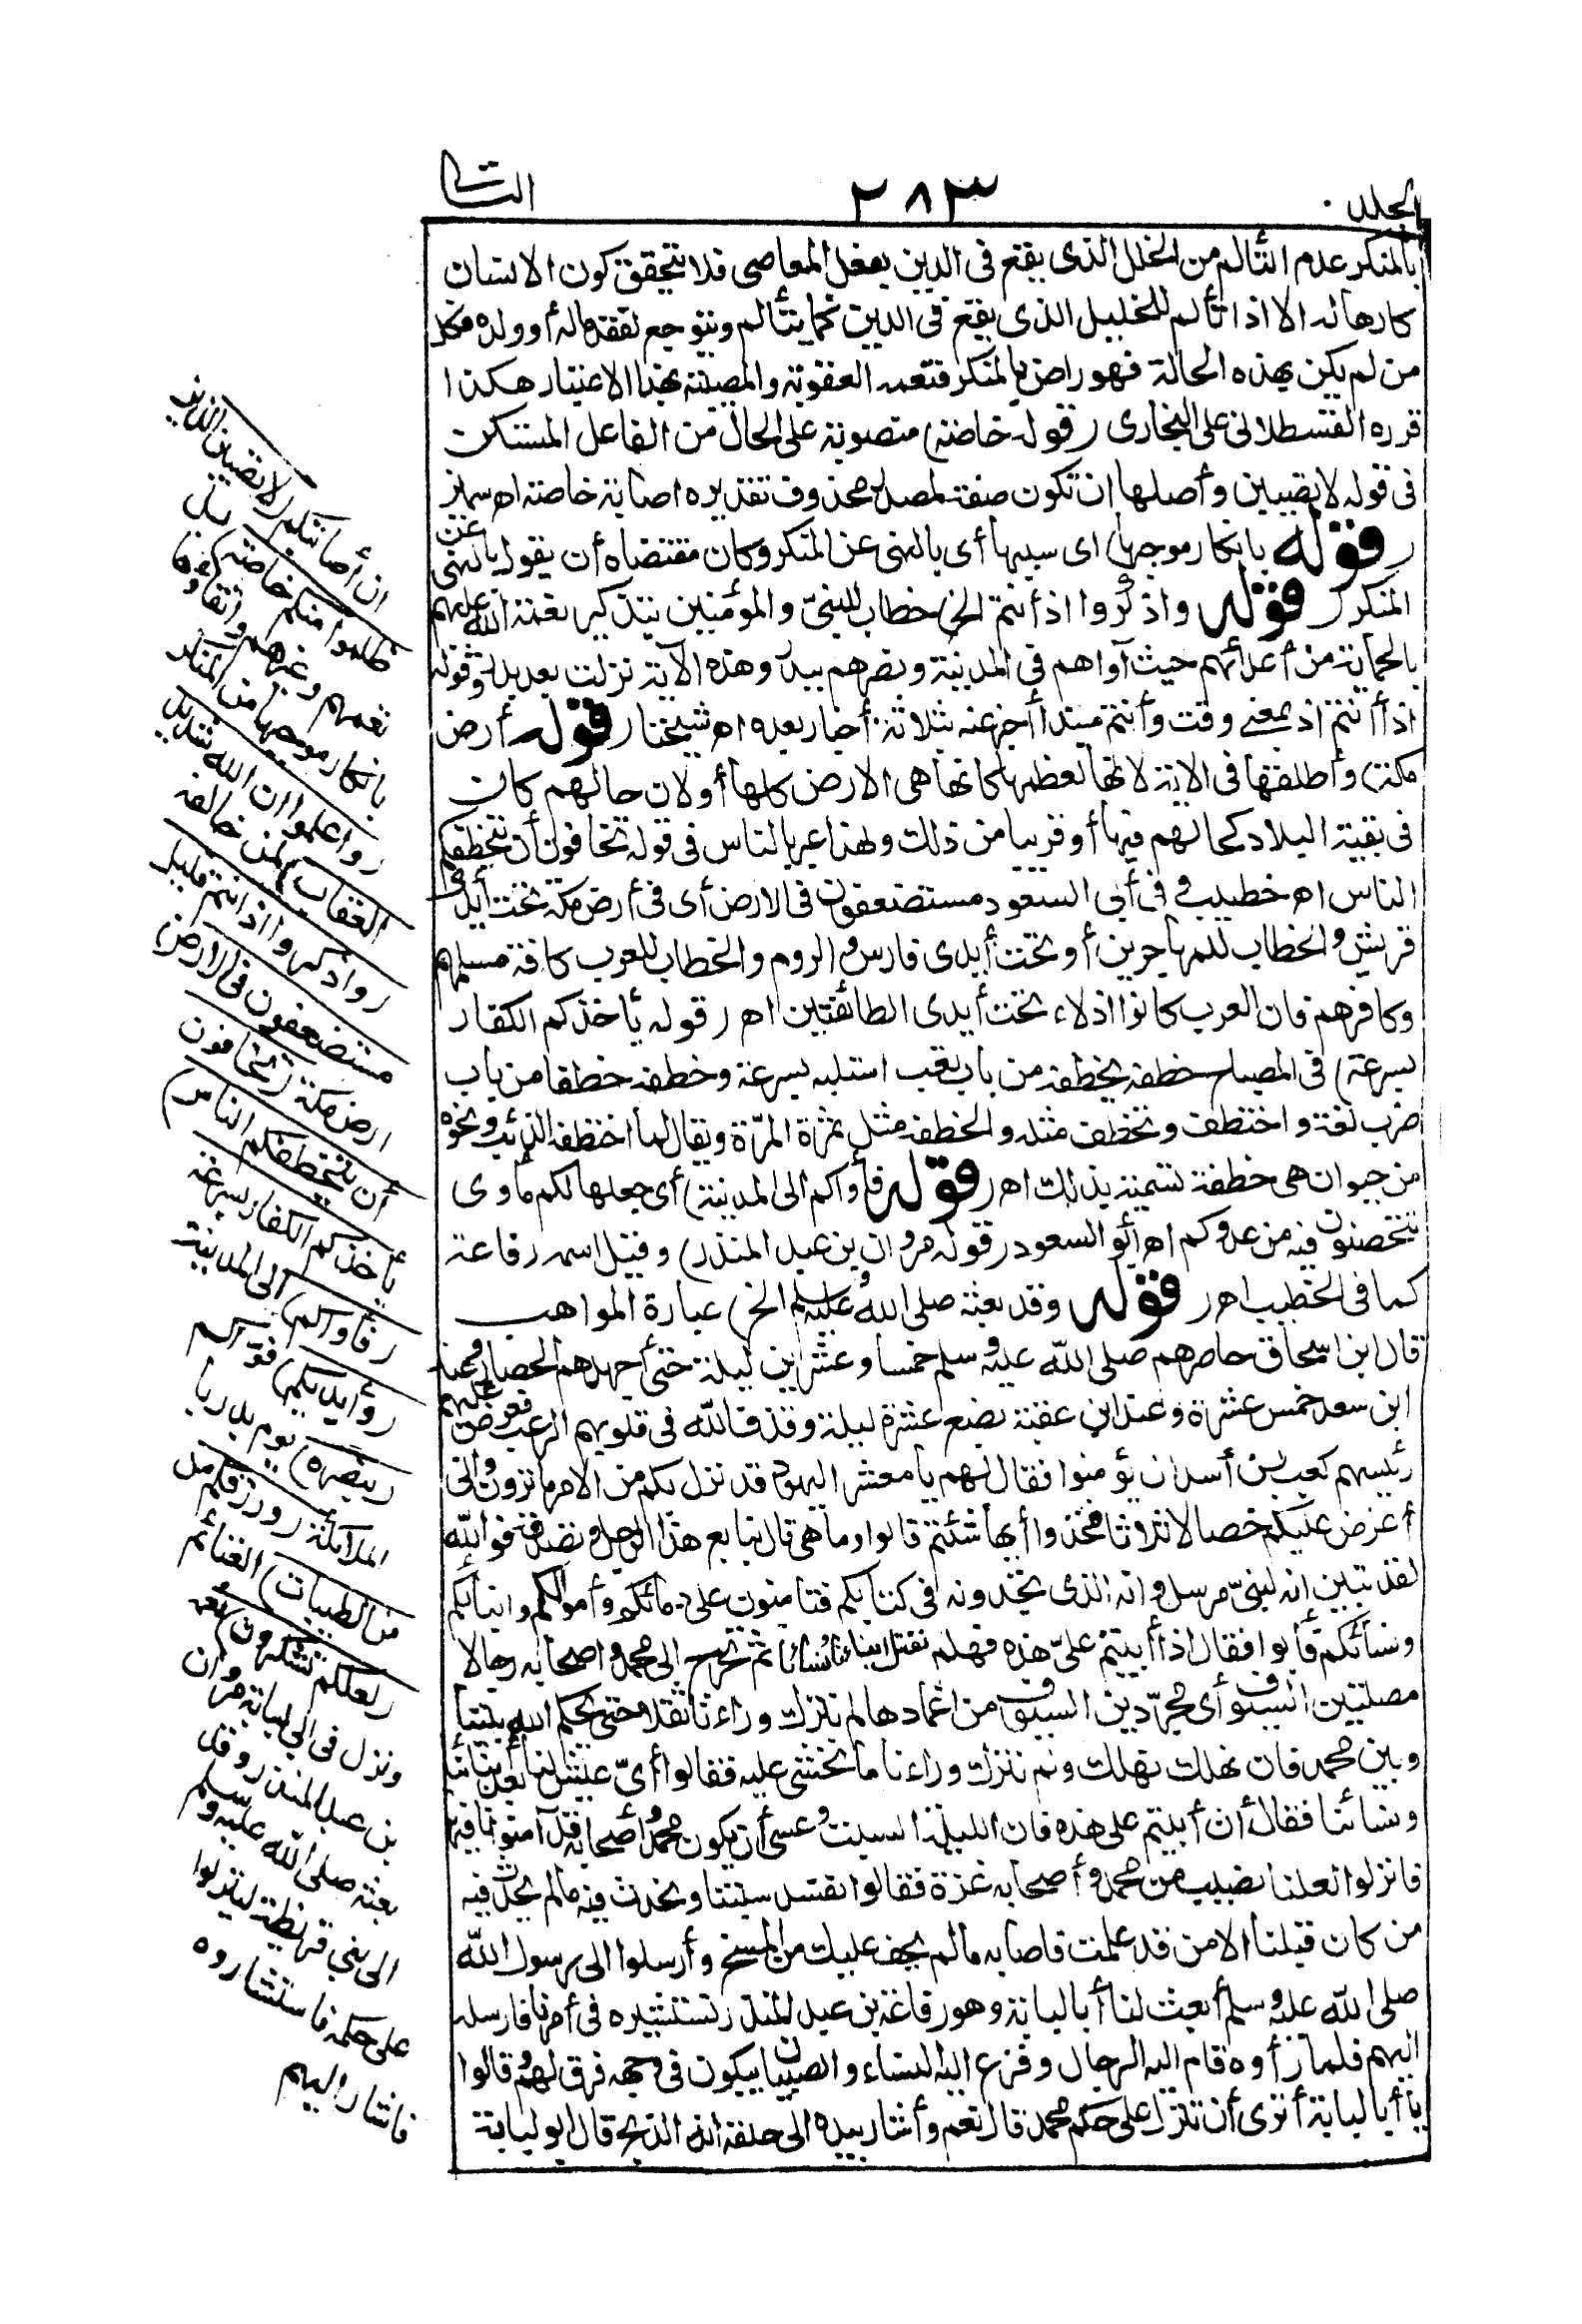 المجلد
٢٨٣
الثانی
بالمنكر عدم التألم من الخلل الذى يقع فى الدين بفعل المعاصى فلا يتحقق كون الانسان
كارها له الا اذا تألم للخلل الذى يقع فى الدين كما يتألم ويتوجع لفقد ماله أو ولده فكل
من لم يكن بهذه الحالة فهو راض بالمنكر فتعمه العقوبة والمصيبة بهذا الاعتبار هكذا
قرره القسطلانى على البخارى (قوله خاصة) منصوبة على الحال من الفاعل المستكن
فى قوله لا تصيبن وأصلها ان تكون صفة لمصدر محذوف تقديره اصابة خاصة اه سمين
(قوله بانكار موجبها) اى سببها أى بالنهى عن المنكر وكان مقتضاه أن يقول بالنهى عن
المنكر (قوله واذكروا اذ أنتم الخ) خطاب للنبىّ والمؤمنين بتذكير نعمة الله عليهم
بالحماية من أعدائهم حيث آواهم فى المدينة ونصرهم ببدر وهذه الآية نزلت بعد بدر وقوله
اذ أنتم اذ بمعنى وقت وأنتم مبتدأ أخبر عنه بثلاثة أخبار بعده اه شيخنا (قوله أرض
مكة) وأطلقها فى الاية لانها لعظمها كانها هى الارض كلها أو لان حالهم كان
فى بقية البلاد كحالهم فيها أو قريبا من ذلك ولهذا عبر بالناس فى قوله تخافون أن يتخطفكم
الناس اه خطيب وفى أبى السعود مستضعفون فى الارض أى فى أرض مكة تحت أيدى
قريش والخطاب للمهاجرين أو تحت أيدى فارس والروم والخطاب للعرب كافة مسلمهم
وكافرهم فان العرب كانوا اذلاء تحت أيدى الطائفتين اه (قوله يأخذكم الكفار
بسرعة) فى المصباح خطفه يخطفه من باب تعب استلبه بسرعة وخطفه خطفا من باب
ضرب لغة واختطف وتخطف مثله والخطفة مثل تمرة المرّة ويقال لما اختطفه الذئب ونحوه
من حيوان هى خطفة تسمية بذلك اه (قوله فآواكم الى المدينة) أى جعلها لكم مأوى
تتحصنون فيه من عدوكم اه أبو السعود (قوله مروان بن عبد المنذر) وقيل اسمه رفاعة
كما فى الخطيب اه (قوله وقد بعثه صلى الله عليه وسلم الخ) عبارة المواهب
قال ابن اسحاق حاصرهم صلى الله عليه وسلم خمسا وعشرين ليلة حتى أجهدهم الحصار وعند
ابن سعد خمس عشرة وعند ابن عقبة بضع عشرة ليلة وقذف الله فى قلوبهم الرعب فعرض عليهم
رئيسهم كعب بن أسد ان يؤمنوا فقال لهم يا معشر اليهود قد نزل بكم من الامر ما ترون وانى
أعرض عليكم خصالا ثلاثا فخذوا أيها شئتم قالوا وما هى قال نبايع هذا الرجل ونصدقه فوالله
لقد تبين انه لنبىّ مرسل وانه الذى تجدونه فى كتابكم فتأمنون على دمائكم وأموالكم وابنائكم
ونسائكم فأبوا فقال اذا أبيتم علىّ هذه فهلم نقتل ابناءنا ونساءنا ثم نخرج الى محمد واصحابه رجالا
مصلتين السيوف أى مجرّدين السيوف من اغمادها لم نترك وراءنا ثقلا حتى يحكم الله بيننا
وبين محمد فان نهلك نهلك ولم نترك وراءنا ما نخشى عليه فقالوا أىّ عيش لنا بعد أبنائنا
ونسائنا فقال أن أبيتم على هذه فان الليلة السبت وعسى أن يكون محمد وأصحابه قد آمنوا فيها
فانزلوا لعلنا نصيب من محمد وأصحابه غرة فقالوا نفسد سبتنا ونحدث فيه مالم يحدث فيه
من كان قبلنا الا من قد علمت فاصابه مالم يخف عليك من المسخ وأرسلوا الى رسول الله
صلى الله عليه وسلم أبعث لنا أبا لبابة وهو رفاعة بن عبد المنذر نستشيره فى أمرنا فارسله
اليهم فلما رأوه قام اليه الرجال وفزع اليه النساء والصبيان يبكون فى وجهه فرق لهم وقالوا
يا أبا لبابة أترى أن ننزل على حكم محمد قال نعم وأشار بيده الى حلقه انه الذبح قال ابو لبابة
ان أصابتكم (لا تصيبن الذين
ظلموا منكم خاصة) بل
تعمهم وغيرهم واتقاؤها
بانكار موجبها من المنكر
(واعلموا ان الله شديد
العقاب) لمن خالفه
(واذكروا اذ أنتم قليل
مستضعفون فى الارض)
ارض مكة (تخافون
أن يتخطفكم الناس)
يأخذكم الكفار بسرعة
(فآواكم) الى المدينة
(وأيدكم) قوّاكم
(بنصره) يوم بدر با
لملائكة (ورزقكم من
من الطيبات) الغنائم
(لعلكم تشكرون) نعمه
ونزل فى ابى لبابة مروان
بن عبد المنذر وقد
بعثه صلى الله عليه وسلم
الى بنى قريظة لينزلوا
على حكمه فاستشاروه
فاشار اليهم